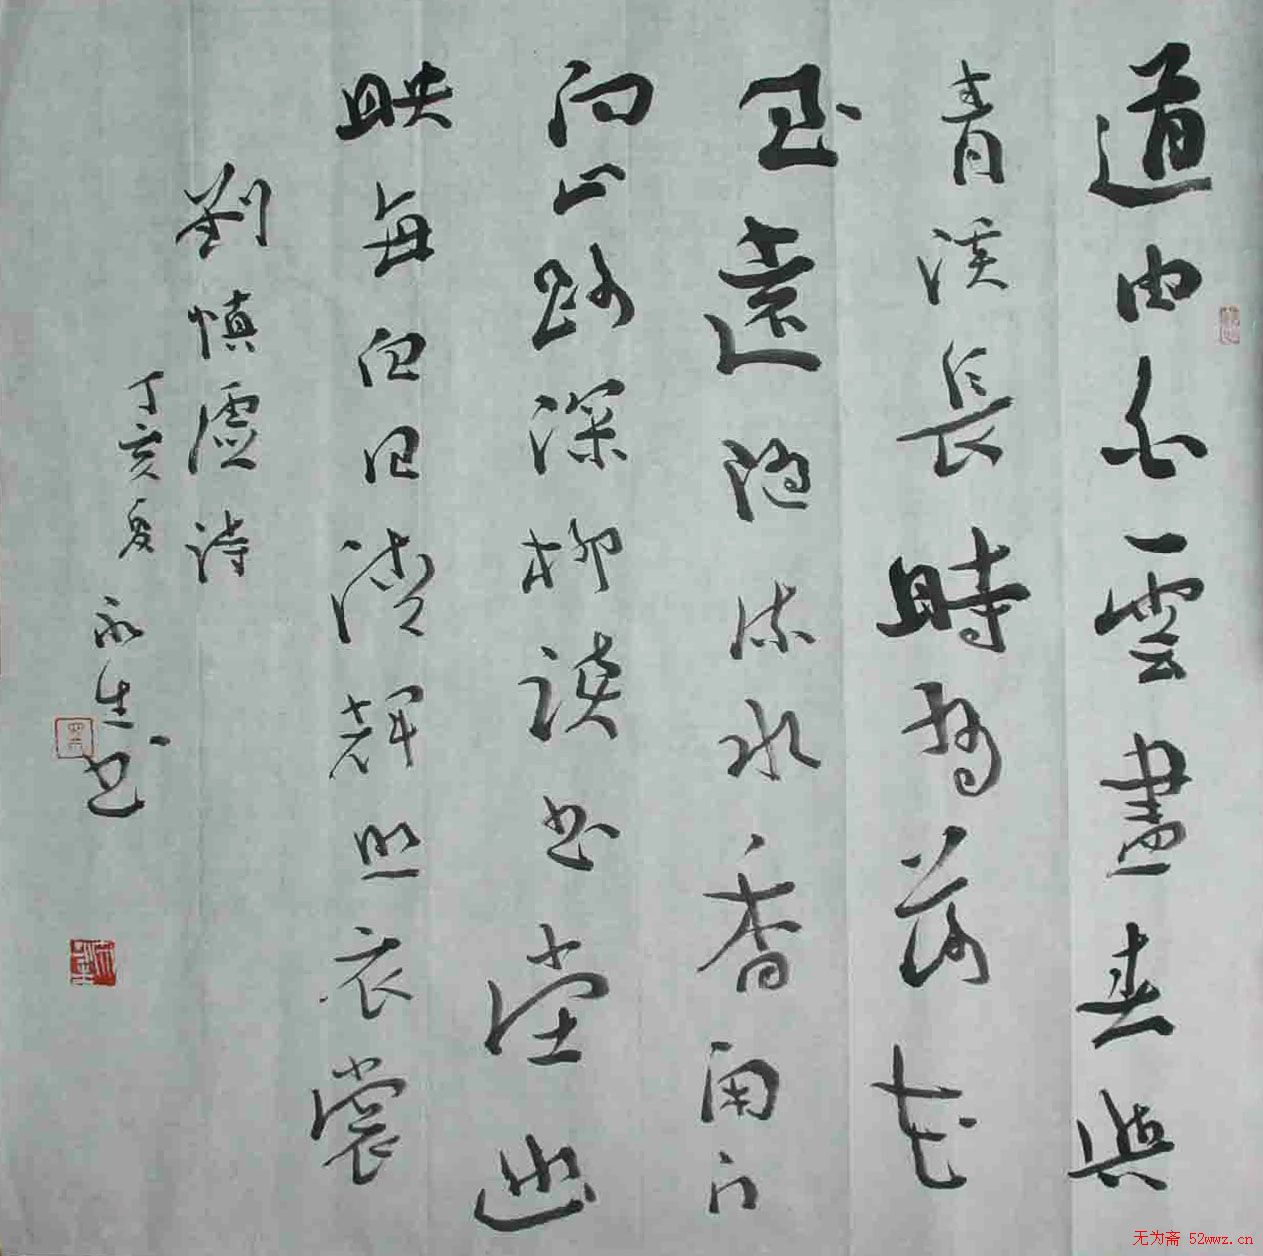 道由白雲盡春與
青溪長時有落花
至遠隨流水香閑門
向山路深柳讀書堂幽
映每白日清輝照衣裳
劉慎虛詩
丁亥夏永生书
无为斋 52wwz.cn